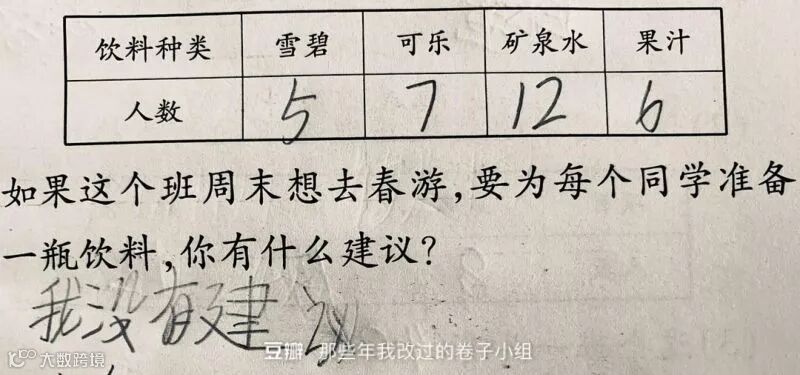 饮料种类 雪碧 可乐 矿泉水 果汁
人数 5 7 12 6
如果这个班周末想去春游,要为每个同学准备
一瓶饮料,你有什么建议?
我没有建议
豆瓣 那些年我改过的卷子小组
100 大数跨境